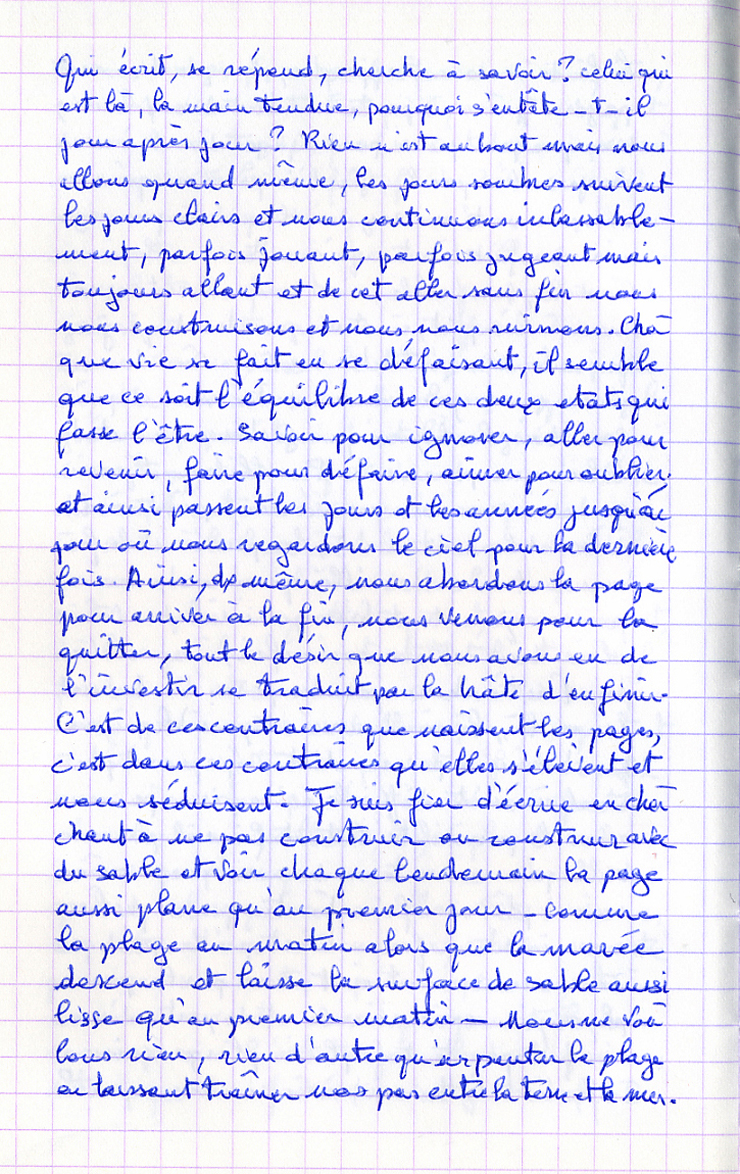 Qui écrit, se répand, cherche à savoir ? celui qui
est là, la main tendue, pourquoi s'entête-t-il
jour après jour ? Rien n'est au bout mais nous
allons quand même, les jours sombres suivent
les jours clairs et nous continuons inlassable-
ment, parfois jouant, parfois jugeant mais
toujours allant et de cet aller sans fin nous
nous construisons et nous nous ruinons. Cha
que vie se fait en se défaisant, il semble
que ce soit l'équilibre de ces deux etats qui
fasse l'être. Savoir pour ignorer, aller pour
revenir, faire pour défaire, aimer pour oublier.
et ainsi passent les jours et les années jusqu'au
jour où nous regardons le ciel pour la dernière
fois. Ainsi, de même, nous abordons la page
pour arriver à la fin, nous venons pour la
quitter, tout le désir que nous avons eu de
l'investir se traduit par la hâte d'en finir.
C'est de ces contraires que naissent les pages,
c'est dans ces contraires qu'elles s'élèvent et
nous séduisent. Je suis fier d'écrire en cher
chant à ne pas construire ou construire avec
du sable et voir chaque lendemain la page
aussi plane qu'au premier jour - comme
la plage au matin alors que la marée
descend et laisse la surface de sable aussi
lisse qu'au premier matin — Nous ne vou
lons rien, rien d'autre qu'arpenter la plage
en laissant traîner nos pas entre la terre et la mer.